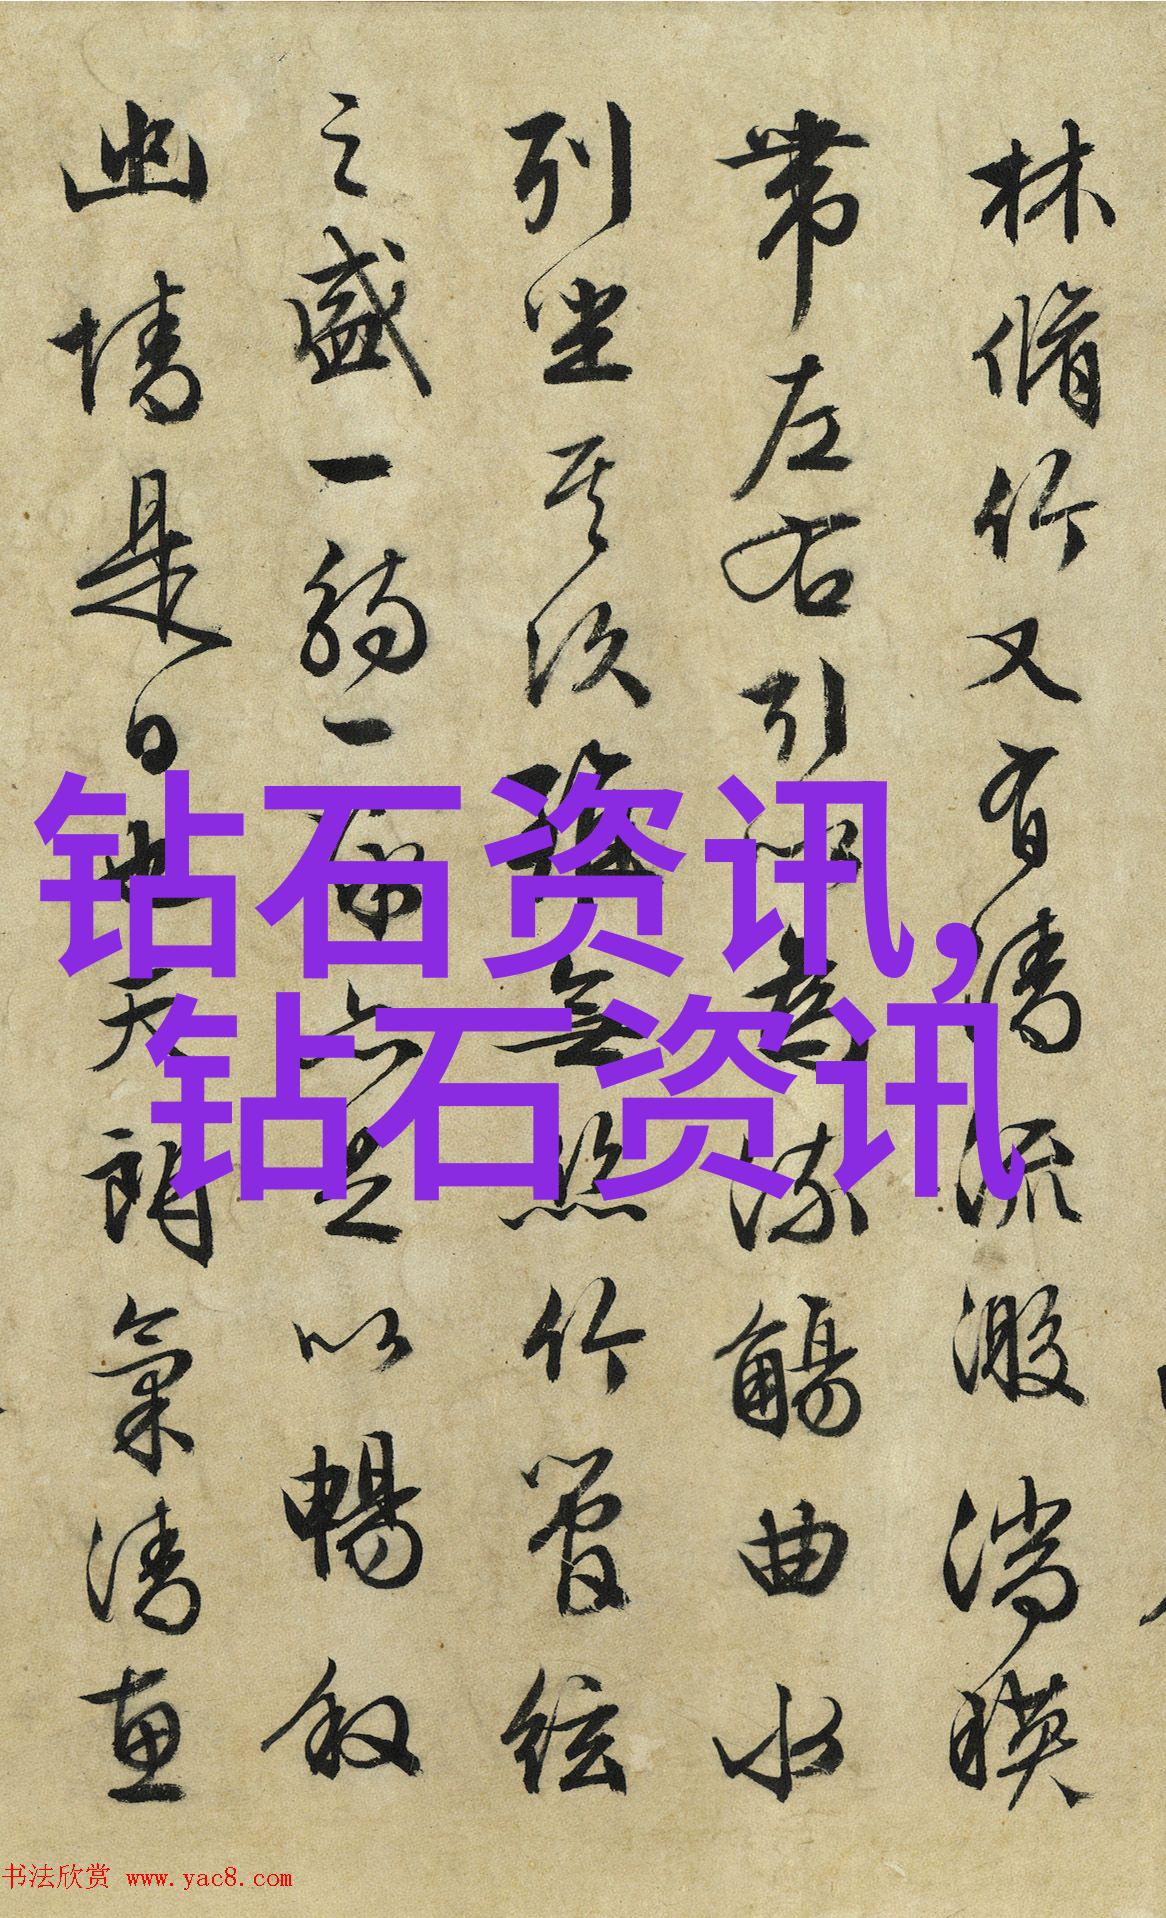 林脩竹又有清流激湍暎
带左右引以為流觴曲水
列坐其次雖無絲竹管弦
之盛一觴一詠亦足以暢叙
幽情是日也天朗氣清惠
钻石资讯,
钻石资讯
书法欣赏 www.yac8.com